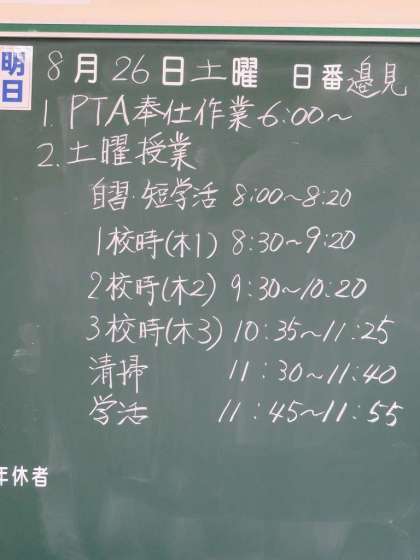 明日 8月26日土曜 日番邉見
1. PTA奉仕作業 6:00〜
2. 土曜授業
自習・短学活 8:00〜8:20
1校時(木1) 8:30〜9:20
2校時(木2) 9:30〜10:20
3校時(木3) 10:35〜11:25
清掃 11:30〜11:40
学活 11:45〜11:55
年休者